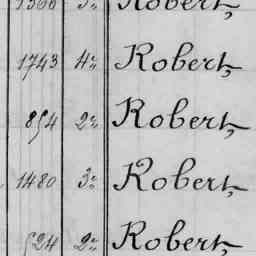 Robert,
1743 4e Robert,
854 2e Robert,
1480 3e Robert,
524 2e Robert,